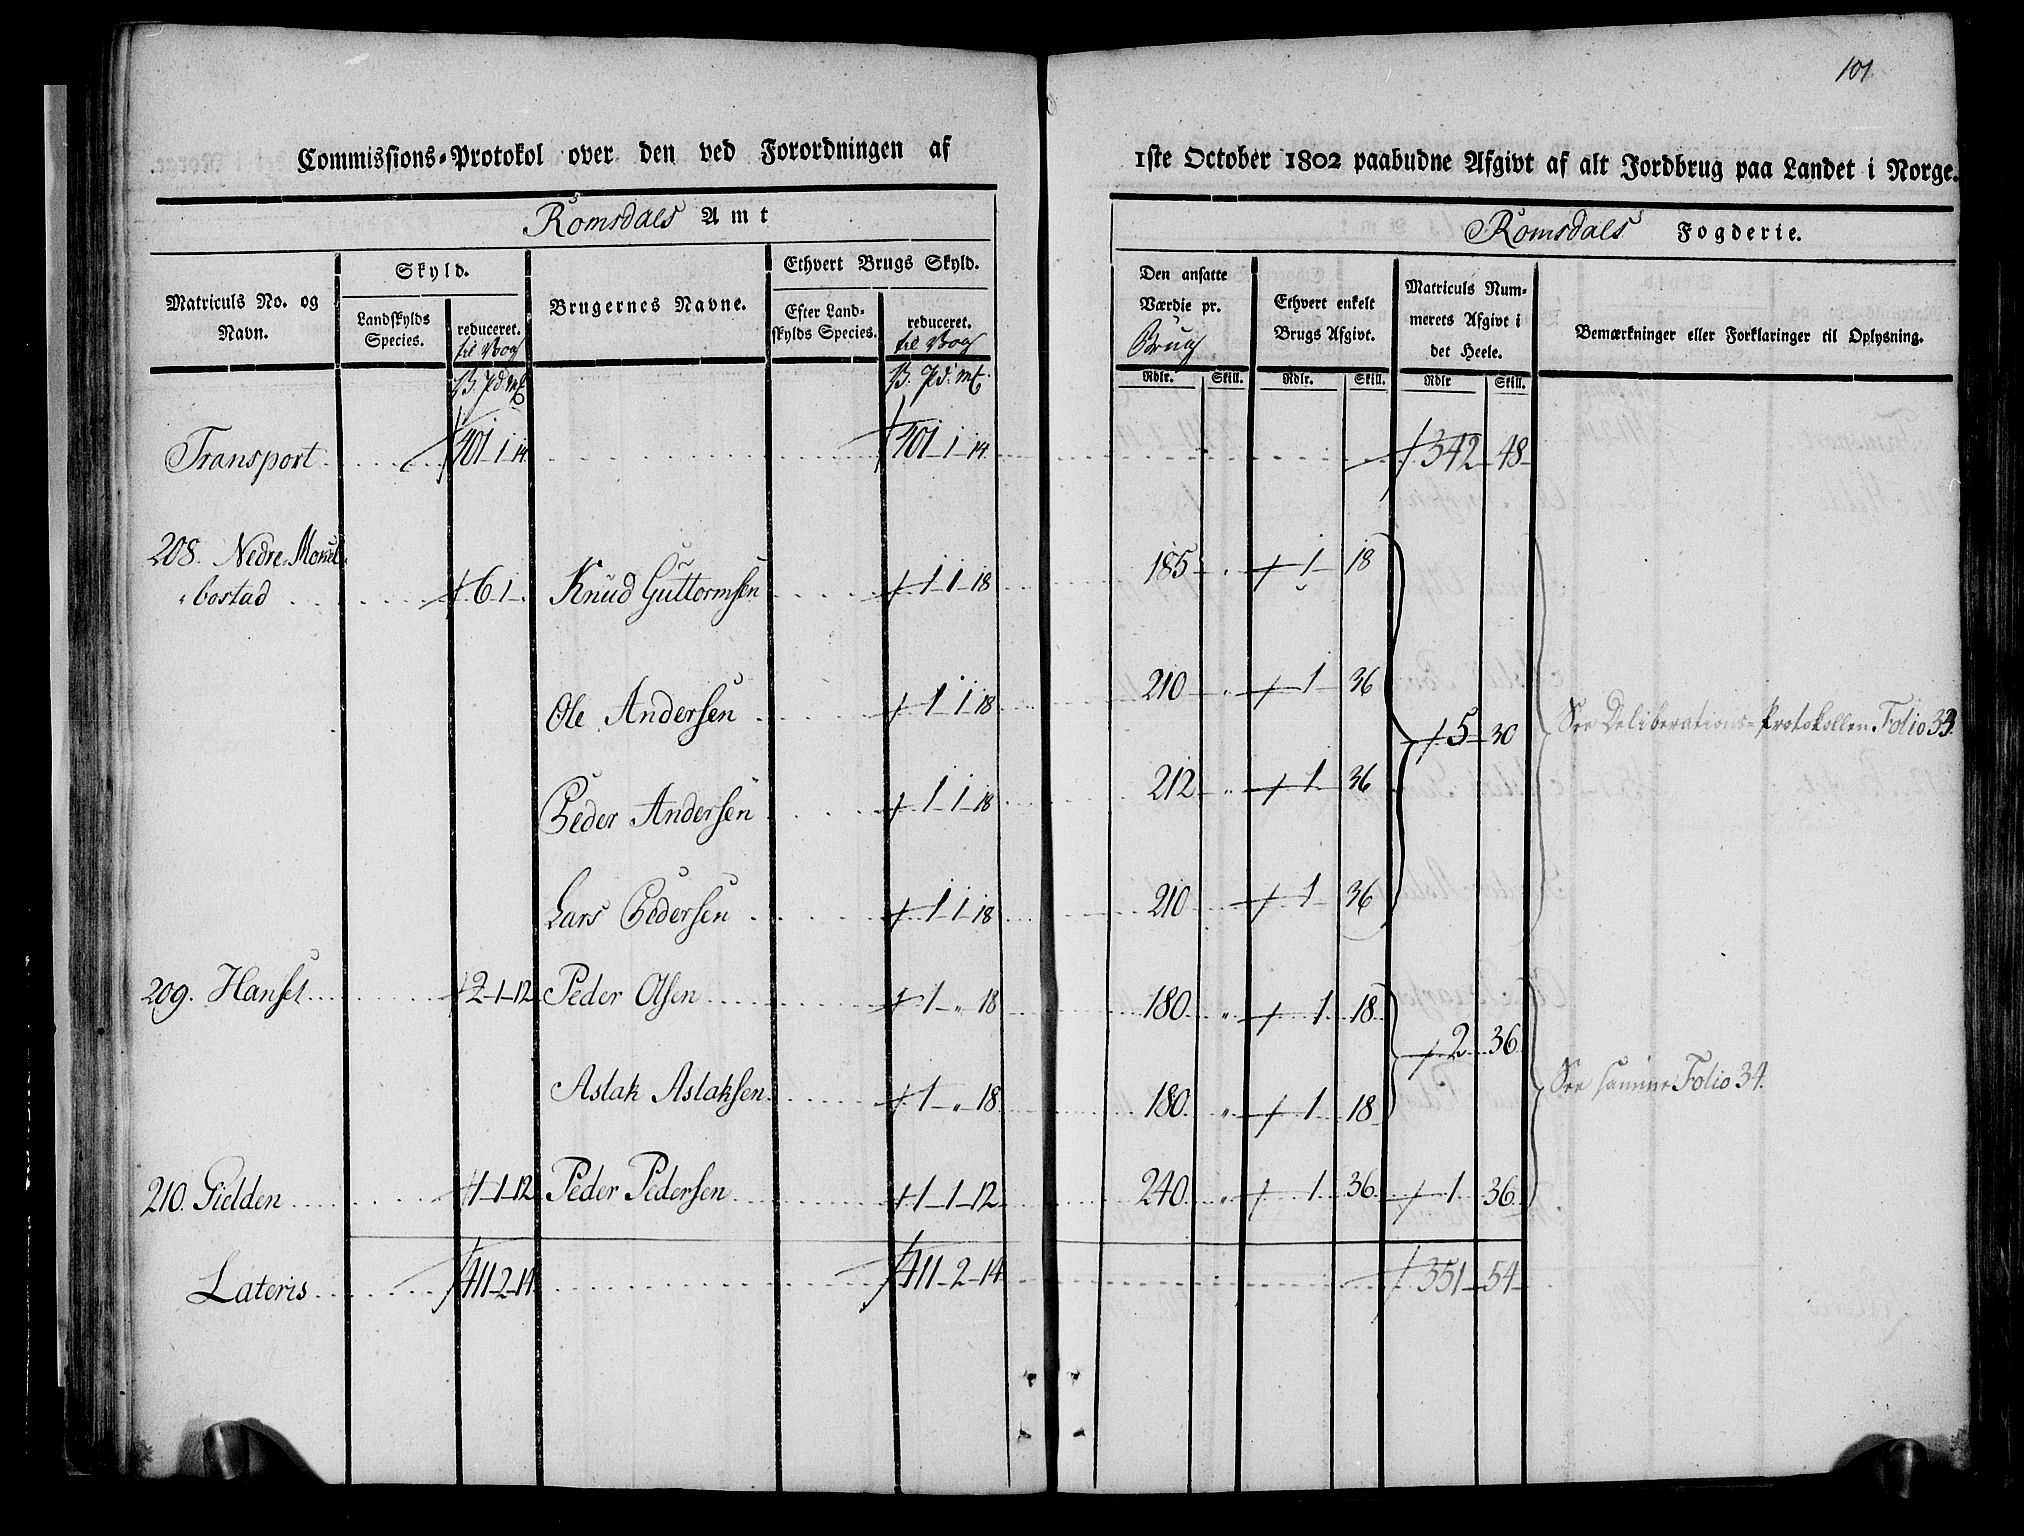 101
Commissions-Protokol over den ved Forordningen af 1ste October 1802 paabudne Afgivt af alt Jordbrug paa Landet i Norge.
Romsdals Amt
Romsdals Fogderie.
Matriculs No. og Navn.
Skyld.
Landskylds Species.
reduceret. til Vog
Brugernes Navne.
Ethvert Brugs Skyld.
Efter Landskylds Species.
reduceret. til Vog
Den ansatte Værdie pr. Brug
Ethvert enkelt Brugs Afgivt.
Matriculs Nummerets Afgivt i det Heele.
Bemærkninger eller Forklaringer til Oplysning.
Rdlr. Skill. Rdlr. Skill. Rdlr Skill.
Transport 401-1-14 401-1-14 342-48
208. Nedre
bostad 6-1 Knud Guttormsen 1-1-18 185 1 18
Ole Andersen 1-1-18 210 1 36 5-30 See Deliberations-Protokollen Folio 33.
Peder Andersen 1-1-18 212 1 36
Lars Pedersen 1-1-18 210 1 36
209. Hanset 2-1-12 Peder Olsen 1 " 18 180 " 1 18 2 36
Aslak Aslaksen 1 " 18 180 " 1 18 See samme Folio 34.
210. Gielden 1-1-12 Peder Pedersen 1-1-12 240 " 1 36 1 36
Lateris 411-2-14 411-2-14 351-54